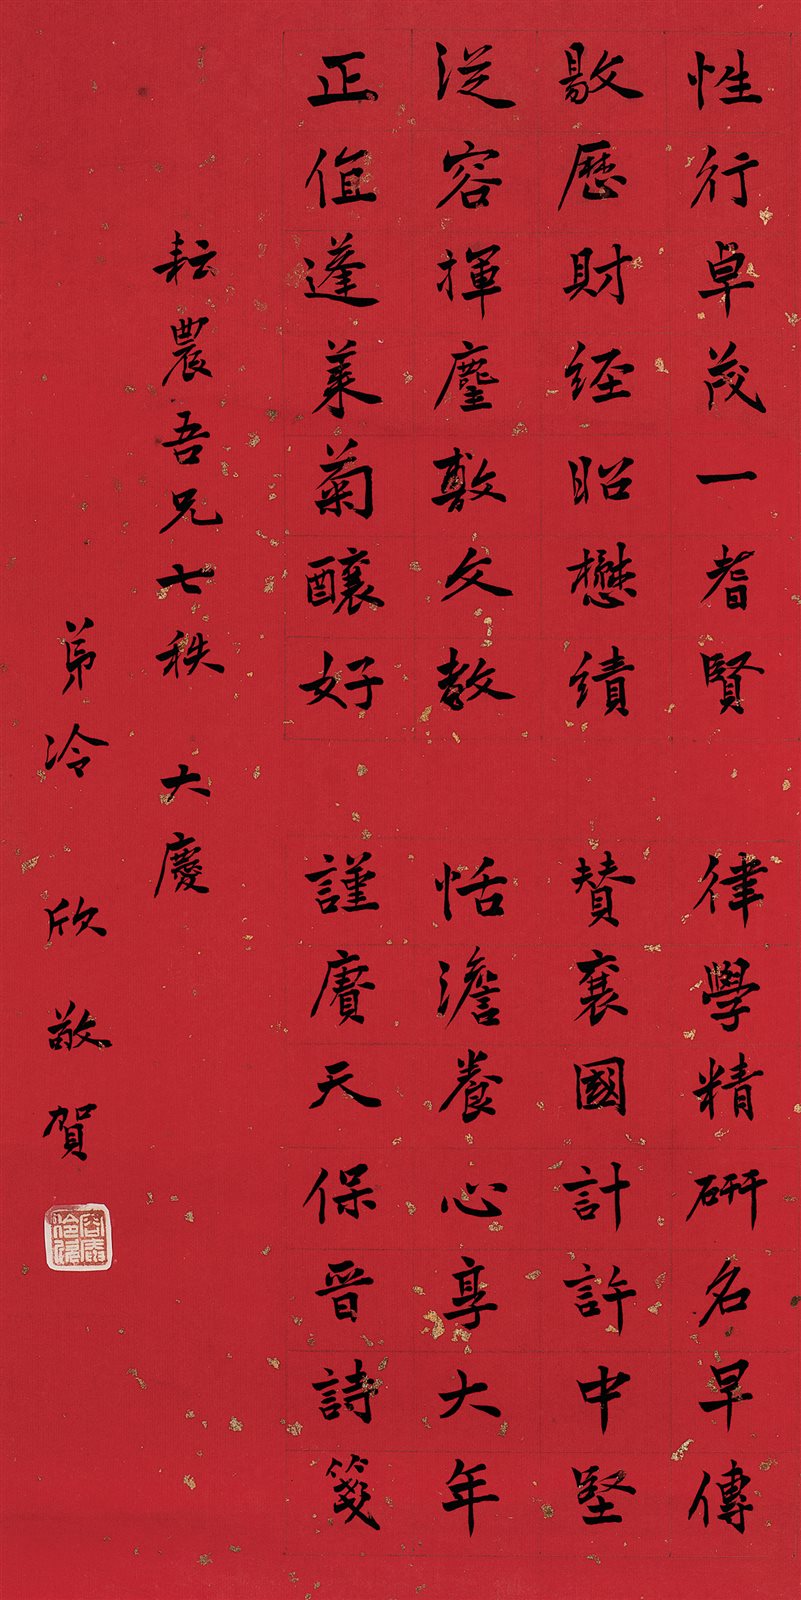 性行卓茂一耆賢 律學精研名早傳
敭歷財經昭懋績 贊襄國計許中堅
從容揮麈敷文教 恬澹養心享大年
正值蓬萊菊釀好 謹賡天保晉詩箋
耘農吾兄七秩 大慶
弟冷 欣敬賀